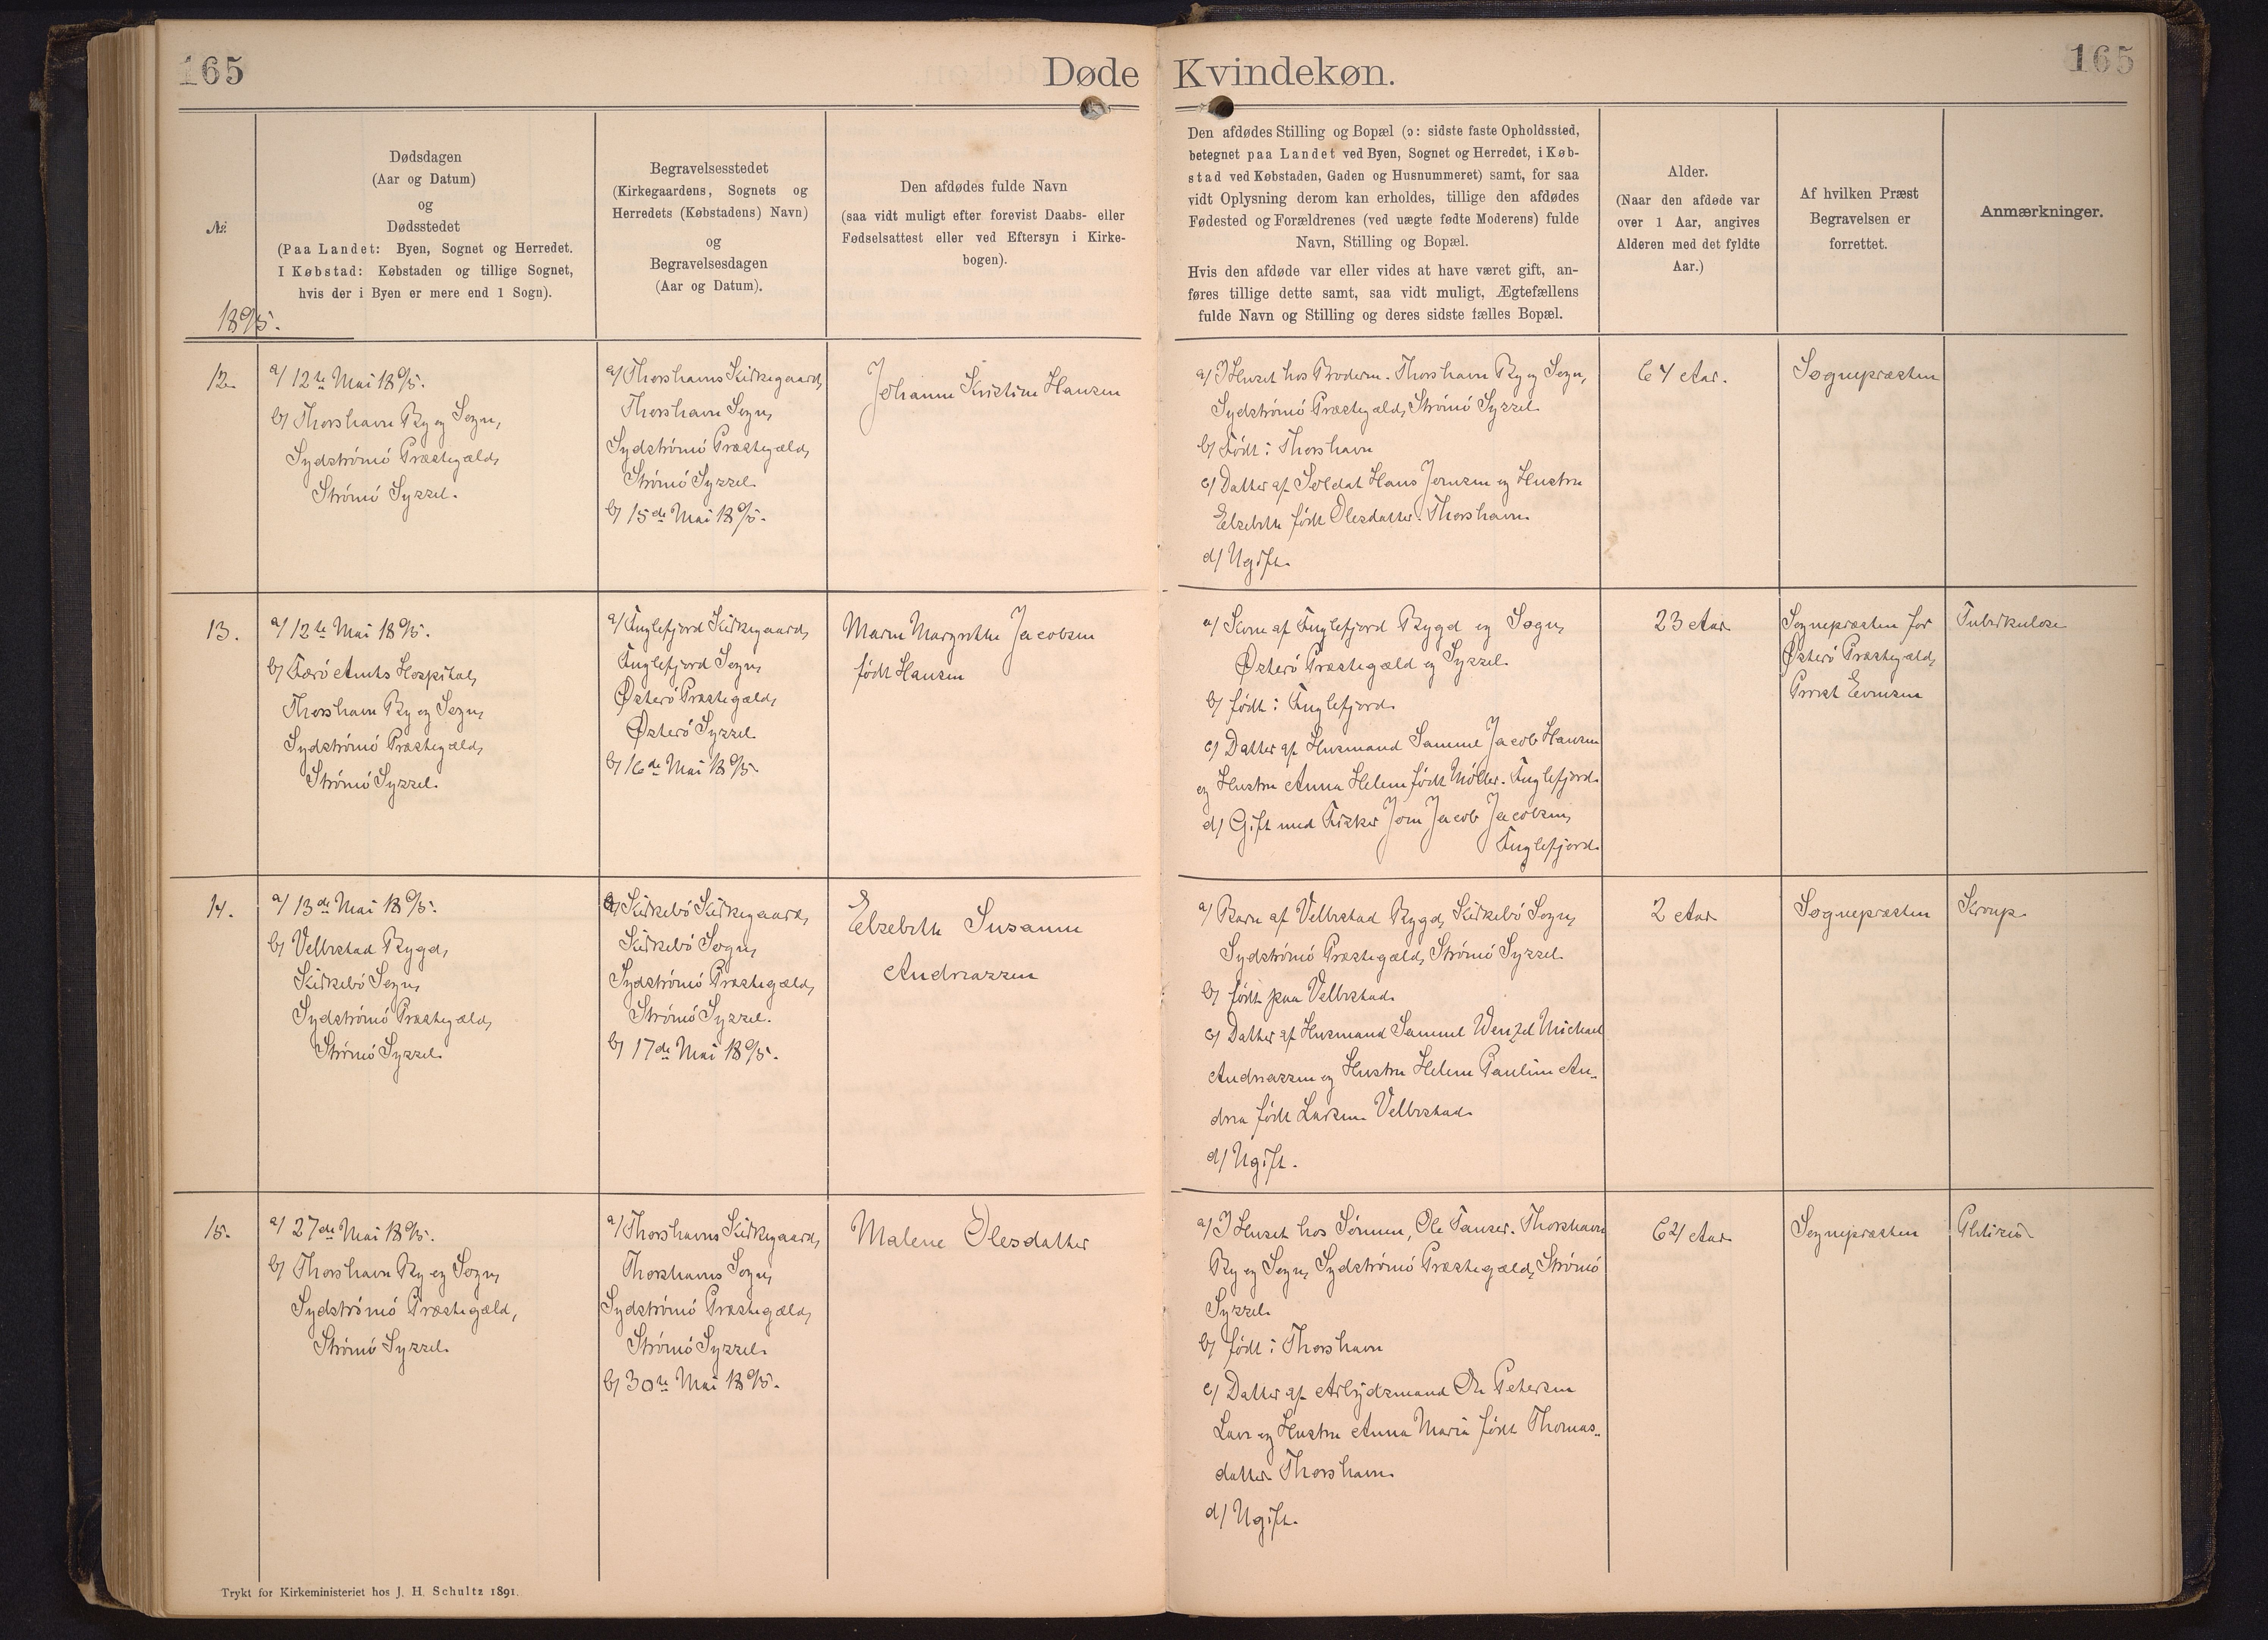 165
Døde Kvindekøn.
165
№
Dødsdagen
(Aar og Datum)
og
Dødsstedet
(Paa Landet: Byen, Sognet og Herredet.
I Købstad: Købstaden og tillige Sognet,
hvis der i Byen er mere end 1 Sogn).
Begravelsesstedet
(Kirkegaardens, Sognets og
Herredets (Købstadens) Navn)
og
Begravelsesdagen
(Aar og Datum).
Den afdødes fulde Navn
(saa vidt muligt efter forevist Daabs- eller
Fødselsattest eller ved Eftersyn i Kirke-
bogen).
Den afdødes Stilling og Bopæl (ɔ: sidste faste Opholdssted,
betegnet paa Landet ved Byen, Sognet og Herredet, i Køb-
stad ved Købstaden, Gaden og Husnummeret) samt, for saa
vidt Oplysning derom kan erholdes, tillige den afdødes
Fødested og Forældrenes (ved uægte fødte Moderens) fulde
Navn, Stilling og Bopæl.
Hvis den afdøde var eller vides at have været gift, an-
føres tillige dette samt, saa vidt muligt, Ægtefællens
fulde Navn og Stilling og deres sidste fælles Bopæl.
Alder.
(Naar den afdøde var
over 1 Aar, angives
Alderen med det fyldte
Aar.)
Af hvilken Præst
Begravelsen er
forrettet.
Anmærkninger.
1895.
12.
a/ 12te Mai 1895.
b/ Thorshavn By og Sogn,
Sydströmö Præstegæld,
Strömö Syssel.
a/ Thorshavns Kirkegaard,
Thorshavn Sogn,
Sydströmö Præstegæld,
Strömö Syssel.
b/ 15de Mai 1895.
Johanne Kristine Hansen
a/ I Huset hos Broderen. Thorshavn By og Sogn,
Sydströmö Præstegæld, Strömö Syssel.
b/ Født i Thorshavn
c/ Datter af Soldat Hans Joensen og Hustru
Elsebeth født Olesdatter. Thorshavn.
d/ Ugift.
64 Aar.
Sognepræsten
13.
a/ 12te Mai 1895.
b/ Færö Amts Hospital,
Thorshavn By og Sogn,
Sydströmö Præstegæld,
Strömö Syssel.
a/ Fuglefjord Kirkegaard,
Fuglefjord Sogn,
Østerö Præstegæld,
Østerö Syssel
b/ 16de Mai 1895.
Maren Margrethe Jacobsen
født Hansen
a/ Kone af Fuglefjord Bygd og Sogn,
Østerö Præstegæld og Syssel.
b/ født i Fuglefjord.
c/ Datter af Husmand Samuel Jacob Hansen
og Hustru Anna Helene født Möller. Fuglefjord.
d/ Gift med Fisker Joen Jacob Jacobsen,
Fuglefjord.
23 Aar
Sognepræsten for
Østerö Præstegæld,
Provst Evensen
Tuberkulose
14.
a/ 13de Mai 1895.
b/ Velbestad Bygd,
Kirkebö Sogn,
Sydströmö Præstegæld,
Strömö Syssel.
a/ Kirkebö Kirkegaard,
Kirkebö Sogn,
Sydströmö Præstegæld,
Strömö Syssel.
b/ 17de Mai 1895.
Elsebeth Susanne
Andreassen
a/ Barn af Velbestad Bygd, Kirkebö Sogn,
Sydströmö Præstegæld, Strömö Syssel.
b/ født paa Velbestad.
c/ Datter af Husmand Samuel Wenzel Michael
Andreassen og Hustru Helene Pauline An-
drea født Larsen. Velbestad.
d/ Ugift.
2 Aar
Sognepræsten
Kroup
15.
a/ 27de Mai 1895.
b/ Thorshavn By og Sogn,
Sydströmö Præstegæld,
Strömö Syssel.
a/ Thorshavns Kirkegaard,
Thorshavns Sogn,
Sydströmö Præstegæld,
Strömö Syssel.
b/ 30te Mai 1895.
Malene Olesdatter
a/ I Huset hos Sönnen, Ole Tauser. Thorshavn
By og Sogn, Sydströmö Præstegæld, Strömö
Syssel.
b/ født i Thorshavn
c/ Datter af Arbejdsmand Ole Petersen
og Hustru Anna Maria født Thomas-
datter. Thorshavn.
d/ Ugift.
Aar
Sognepræsten
Phtisis
Trykt for Kirkeministeriet hos J. H. Schultz 1891.